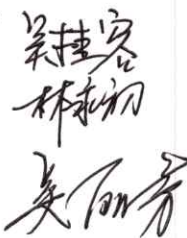 吴桂客
林永初
吴丽芳